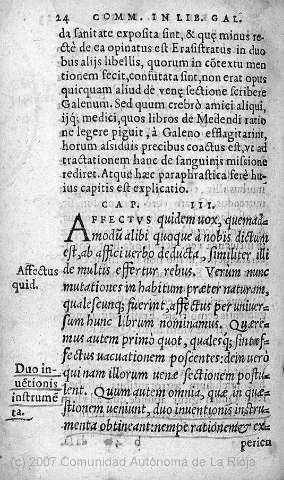 24 COMM. IN LIB. GAL.
da sanitate exposita sint, & quę minus re
ctè de ea opinatus est Erasistratus in duo
bus alijs libellis, quorum in cōtextu men
tionem fecit, confutata sint, non erat opus
quicquam aliud de venę sectione scribere
Galenum. Sed quum crebrò amici aliqui,
ijq; medici, quos libros de Medendi ratio
ne legere piguit, à Galeno efflagitarint,
horum assiduis precibus coactus est, vt ad
tractationem hanc de sanguinis missione
rediret. Atque hæc paraphrastica ferè hu
ius capitis est explicatio.
CAP. III.
AFFECTVS quidem uox, quemad
modū alibi quoque a nobis dictum
est, ab affici uerbo deducta, similiter illi
Affectus quid.
de multis effertur rebus. Verum nunc
mutationes in habitum præter naturam,
qualescunq; fuerint, affectus per uniuer
sum hunc librum nominamus. Quære
mus autem primò quot, qualesq; sint af
fectus uacuationem poscentes: dein uerò
Duo in=
uētionis
instrumē
ta.
qui nam illorum uenæ sectionem postu
lent. Quum autem omnia, quæ in quæ
stionem ueniunt, duo inuentionis instru
menta obtineant nempe rationem & ex
b
pericu
(c) 2007 Comunidad Autónoma de La Rioja